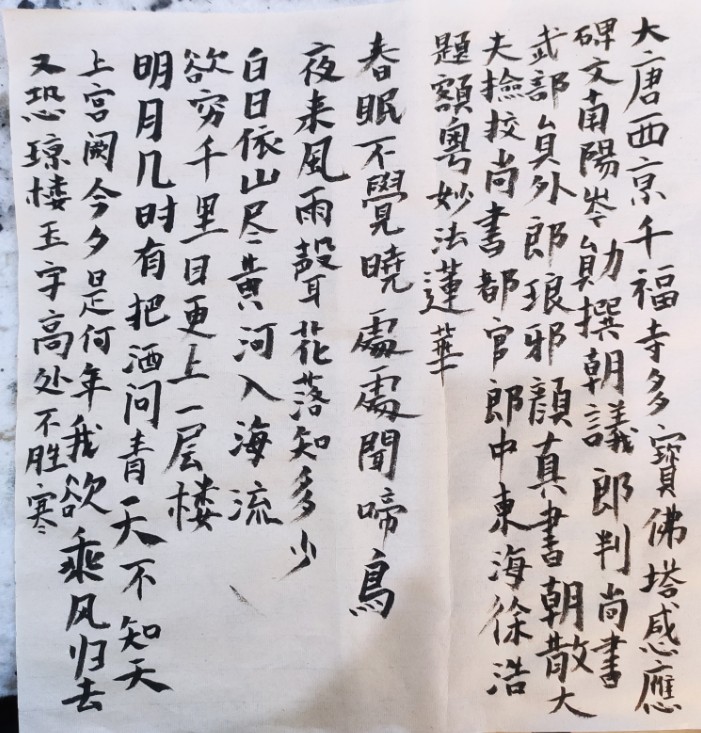 大唐西京千福寺多寳佛塔感應
碑文南陽岑勛撰朝議郎判尚書
武部貟外郎琅邪顔真書朝散大
夫撿挍尚書都官郎中東海徐浩
題額粤妙法蓮華
春眠不覺曉處處聞啼鳥
夜来風雨聲花落知多少
白日依山尽黄河入海流
欲穷千里目更上一层楼
明月几时有把酒问青天不知天
上宫阙今夕是何年我欲乘风归去
又恐琼楼玉宇高处不胜寒